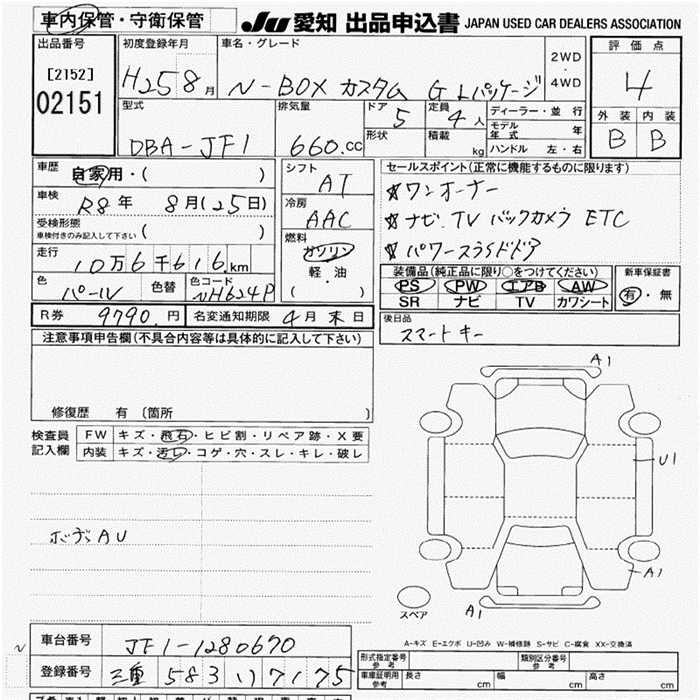 車内保管・守衛保管
JU 愛知 出品申込書 JAPAN USED CAR DEALERS ASSOCIATION
出品番号
[2152]
02151
初度登録年月
H25 8月
車名・グレード
N-BOX カスタム G Lパッケージ
2WD
・
4WD
評価点
4
外装 内装
B B
型式
DBA-JF1
排気量
660.cc
ドア
5
形状
定員
4人
積載
kg
ディーラー・並行
モデル年式 年
ハンドル 左・右
車歴
自家用・( )
車検
R8年 8月(25日)
受検形態
車検付きのみ記入して下さい ( )
走行
10万6千616.km
色
パール
色替
色コード
NH624P
シフト
AT
冷房
AAC
燃料
ガソリン
軽・油
( )
セールスポイント(正常に機能するものに限ります)
☆ワンオーナー
☆ナビ.TV バックカメラ ETC
☆パワースライドドア
装備品(純正品に限り○をつけてください)
PS PW エアB AW
SR ナビ TV カワシート
新車保証書
有・無
R券 9790.円
名変通知期限 4月末日
後日品
スマートキー
注意事項申告欄(不具合内容等は具体的に記入して下さい)
修復歴 有 〔箇所 〕
検査員
記入欄
FW キズ・飛石・ヒビ割・リペア跡・X要
内装 キズ・汚レ・コゲ・穴・スレ・キレ・破レ
ボデーAU
A1
U1
A1
A1
スペア
A-キズ E-エクボ U-凹み W-補修跡 S-サビ C-腐食 XX-交換済
車台番号 JF1-1280670
登録番号 三重 583 い 7175
形式指定番号
参考
類別区分番号
参考
車庫証明用
参考
長さ cm
幅 cm
高さ cm